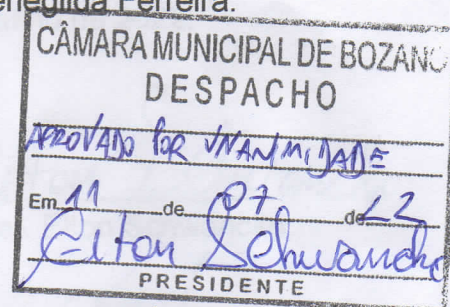 enegilda Ferreira.
CÂMARA MUNICIPAL DE BOZANO
DESPACHO
APROVADO POR UNANIMIDADE
Em 11 de 07 de 22
PRESIDENTE